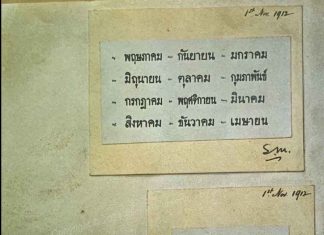 1st Nov. 1912
- พฤษภาคม - กันยายน - มกราคม
- มิถุนายน - ตุลาคม - กุมภาพันธ์
- กรกฎาคม - พฤศจิกายน - มีนาคม
- สิงหาคม - ธันวาคม - เมษายน
S.M.
1st Nov. 1912